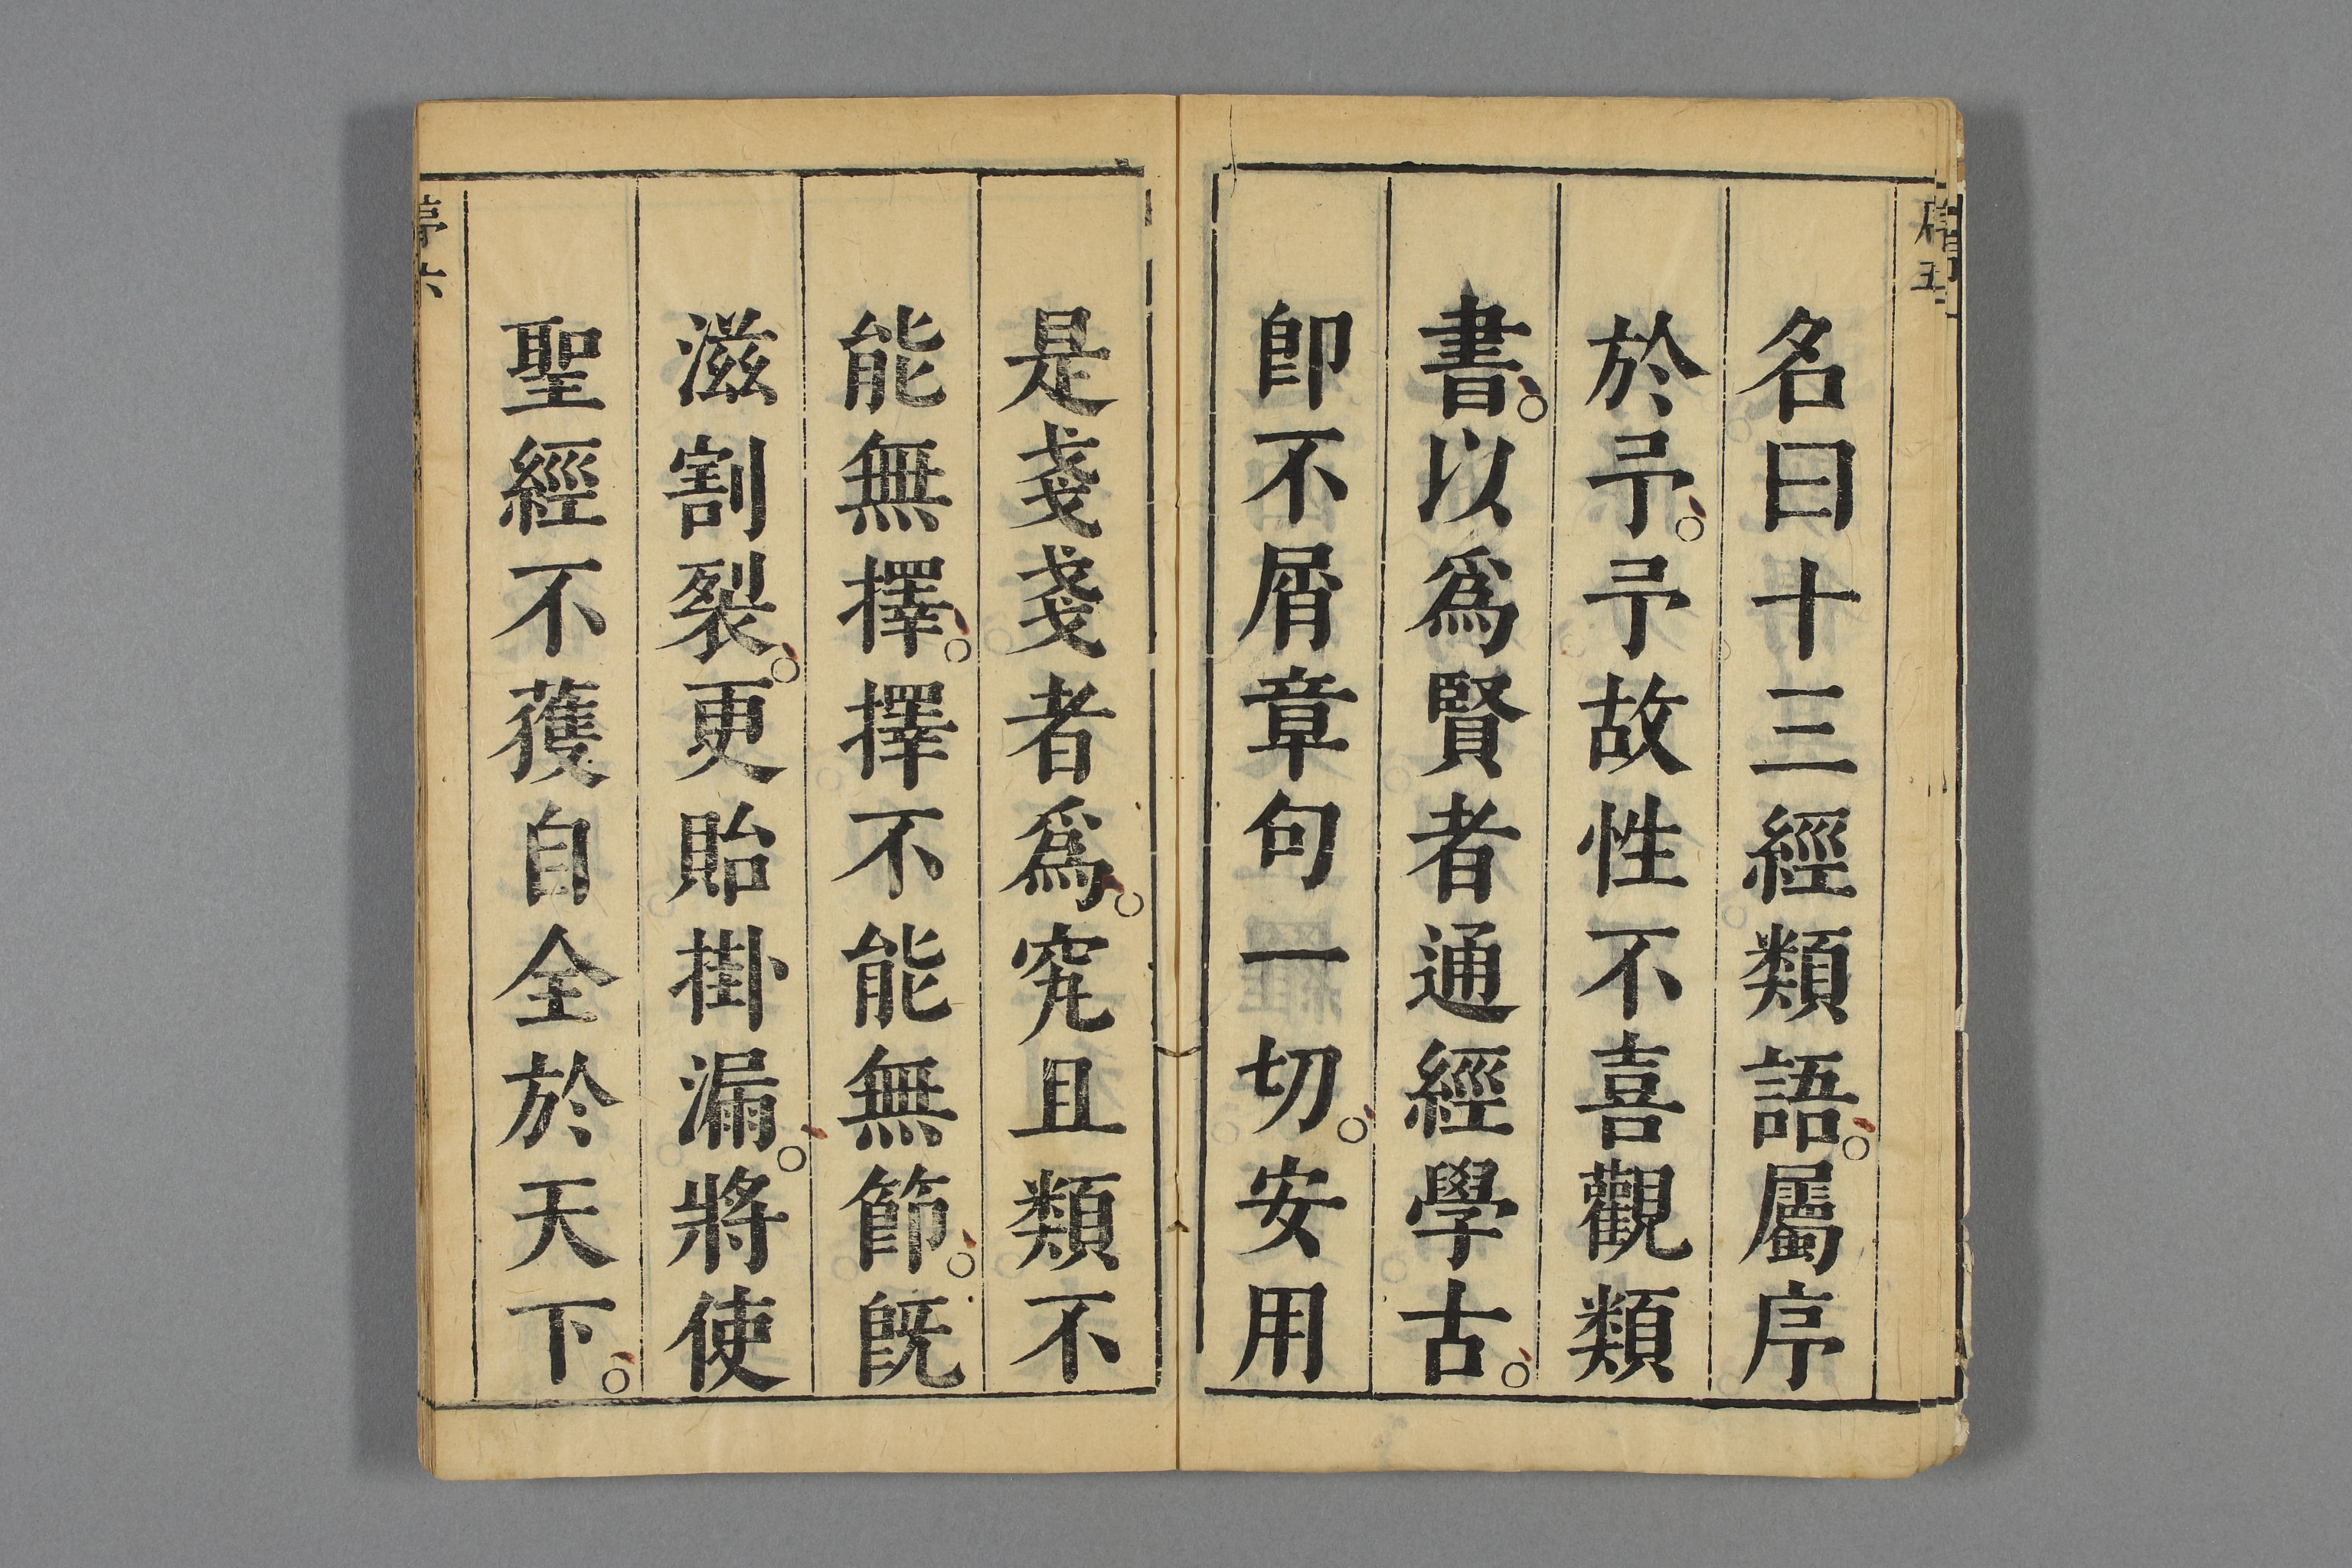 名曰十三經類語。屬序
於予。予故性不喜觀類
書。以爲賢者通經學古。
卽不屑章句一切。安用
是戔戔者爲。究且類不
能無擇。擇不能無節。旣
滋割裂。更貽掛漏。將使
聖經不獲自全於天下。